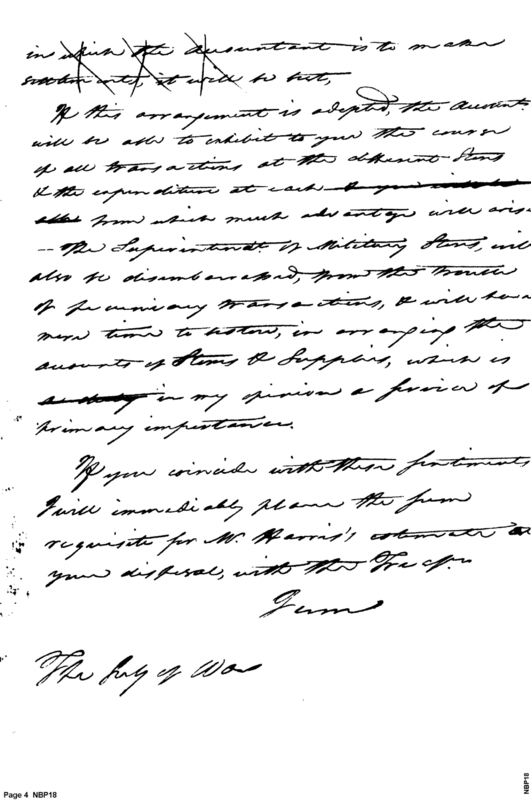 in which the Accountant is to make
settlements, it will be but,
If this arrangement is adopted, the Account.
will be able to exhibit to you the course
of all transactions at the different Stores
& the expenditure at each
from which much advantage will arise
-- The Superintend.t of Military Stores, will
also be disembarrassed, from the trouble
of pecuniary transactions, & will have
more time to bestow, in arranging the
accounts of Stores & Supplies, which is
in my opinion a service of
primary importance.
If you coincide with these sentiments
I will immediately place the sum
requisite for Mr. Harris's estimate at
your disposal, with the Treas.r
I am
The Sec.y of War
Page 4 NBP18
NBP18